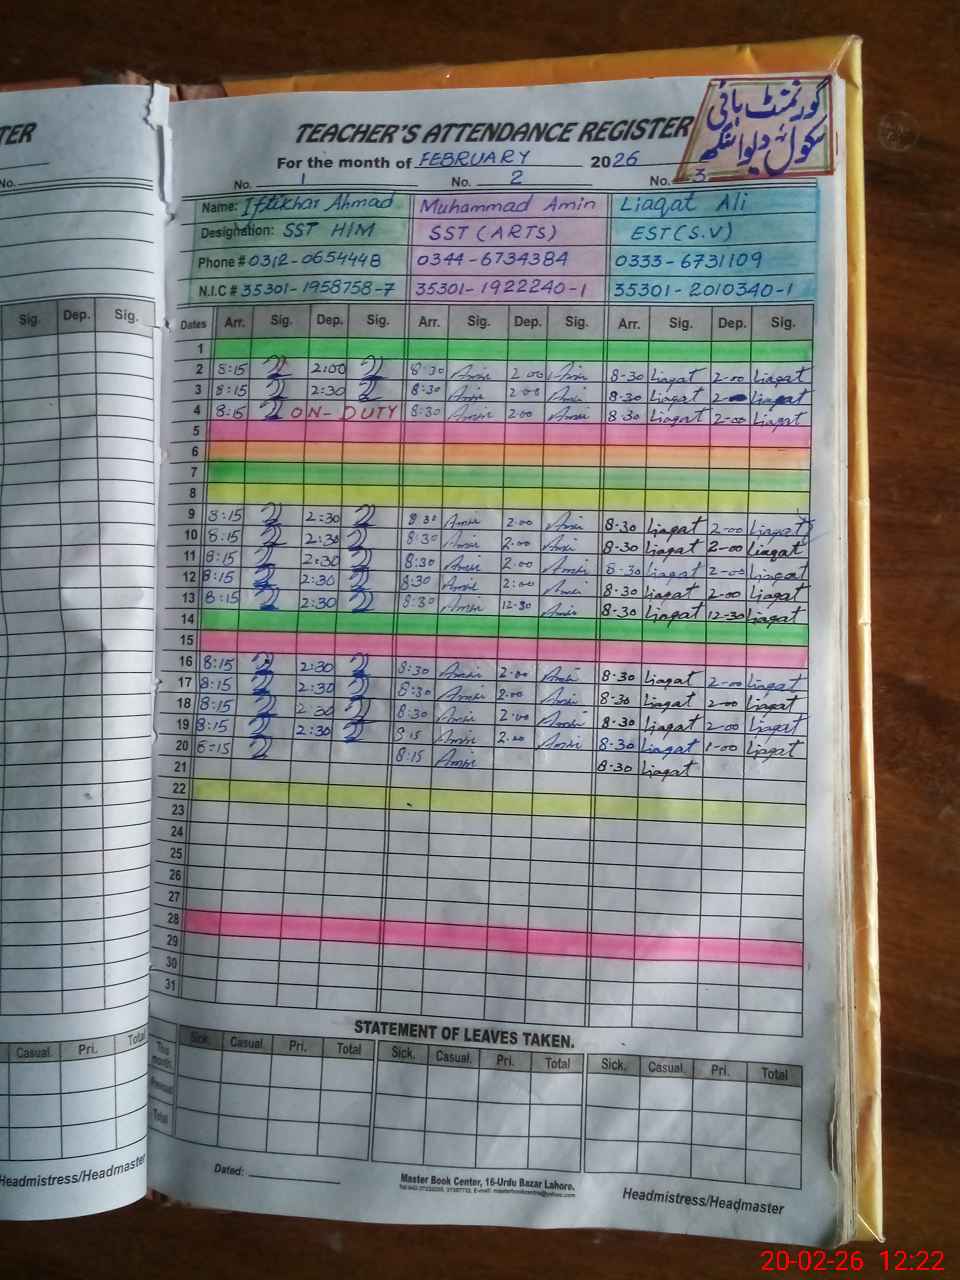 TER
No.
Sig. Dep. Sig.
Casual. Pri. Total
Headmistress/Headmaster
گورنمنٹ ہائی
سکول دیوا سنگھ
TEACHER'S ATTENDANCE REGISTER
For the month of FEBRUARY 2026
No. 1 No. 2 No. 3
Name: Iftikhar Ahmad Muhammad Amin Liaqat Ali
Designation: SST H/M SST (ARTS) EST (S.V)
Phone # 0312-0654448 0344-6734384 0333-6731109
N.I.C # 35301-1958758-7 35301-1922240-1 35301-2010340-1
Dates Arr. Sig. Dep. Sig. Arr. Sig. Dep. Sig. Arr. Sig. Dep. Sig.
1
2 8:15 2:00 8:30 Amin 2:00 Amin 8-30 Liaqat 2-00 Liaqat
3 8:15 2:30 8:30 Amin 2:00 Amin 8-30 Liaqat Liaqat
4 8:15 ON-DUTY 8:30 Amin 2:00 Amin 8-30 Liaqat 2-00 Liaqat
5
6
7
8
9 8:15 2:30 8:30 Amin 2:00 Amin 8-30 Liaqat 2-00 Liaqat
10 8:15 2:30 8:30 Amin 2:00 Amin 8-30 Liaqat 2-00 Liaqat
11 8:15 2:30 8:30 Amin 2:00 Amin 8-30 Liaqat 2-00 Liaqat
12 8:15 2:30 8:30 Amin 2:00 Amin 8-30 Liaqat 2-00 Liaqat
13 8:15 2:30 8:30 Amin 12-30 Amin 8-30 Liaqat 12-30 Liaqat
14
15
16 8:15 2:30 8:30 Amin 2:00 Amin 8-30 Liaqat 2-00 Liaqat
17 8:15 2:30 8:30 Amin 2:00 Amin 8-30 Liaqat 2-00 Liaqat
18 8:15 2:30 8:30 Amin 2:00 Amin 8-30 Liaqat 2-00 Liaqat
19 8:15 2:30 Amin 2:00 Amin 8-30 Liaqat 1-00 Liaqat
20 8:15 8:15 Amin 8-30 Liaqat
21
22
23
24
25
26
27
28
29
30
31
STATEMENT OF LEAVES TAKEN.
Sick. Casual. Pri. Total Sick. Casual. Pri. Total Sick. Casual. Pri. Total
This month.
Total
Dated:
Master Book Center, 16-Urdu Bazar Lahore.
Headmistress/Headmaster
20-02-26 12:22